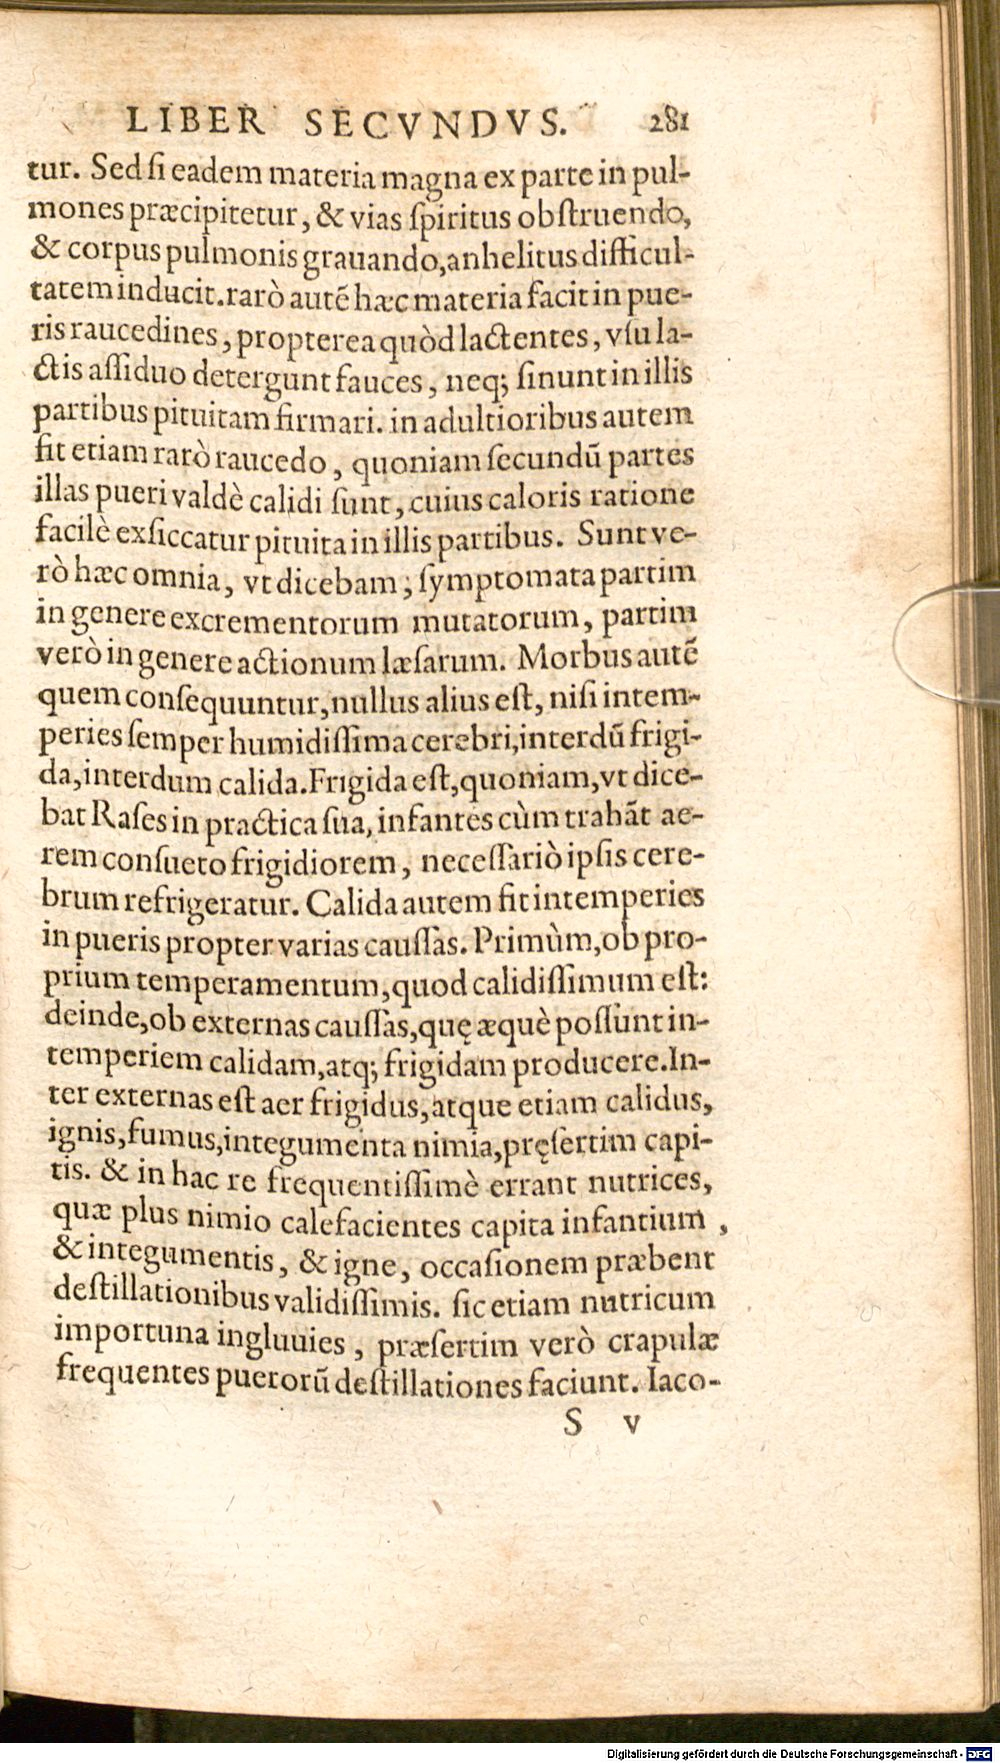 LIBER SECVNDVS. 281
tur. Sed ſi eadem materia magna ex parte in pul-
mones præcipitetur, & vias ſpiritus obſtruendo,
& corpus pulmonis grauando, anhelitus difficul-
tatem inducit. rarò autē hæc materia facit in pue-
ris raucedines, propterea quòd lactentes, vſu la-
ctis aſſiduo detergunt fauces, neq; ſinunt in illis
partibus pituitam firmari. in adultioribus autem
fit etiam rarò raucedo, quoniam ſecundū partes
illas pueri valdè calidi ſunt, cuius caloris ratione
facilè exſiccatur pituita in illis partibus. Sunt ve-
rò hæc omnia, vt dicebam; ſymptomata partim
in genere excrementorum mutatorum, partim
verò in genere actionum læſarum. Morbus autē
quem conſequuntur, nullus alius eſt, niſi intem-
peries ſemper humidiſſima cerebri, interdū frigi-
da, interdum calida. Frigida eſt, quoniam, vt dice-
bat Raſes in practica ſua, infantes cùm trahāt ae-
rem conſueto frigidiorem, neceſſariò ipſis cere-
brum refrigeratur. Calida autem fit intemperies
in pueris propter varias cauſſas. Primùm, ob pro-
prium temperamentum, quod calidiſſimum eſt:
deinde, ob externas cauſſas, quę æquè poſſunt in-
temperiem calidam, atq; frigidam producere. In-
ter externas eſt aer frigidus, atque etiam calidus,
ignis, fumus, integumenta nimia, pręſertim capi-
tis. & in hac re frequentiſſimè errant nutrices,
quæ plus nimio calefacientes capita infantium,
& integumentis, & igne, occaſionem præbent
deſtillationibus validiſſimis. ſic etiam nutricum
importuna ingluuies, præſertim verò crapulæ
frequentes puerorū deſtillationes faciunt. Iaco-
S v
Digitalisierung gefördert durch die Deutsche Forschungsgemeinschaft - DFG